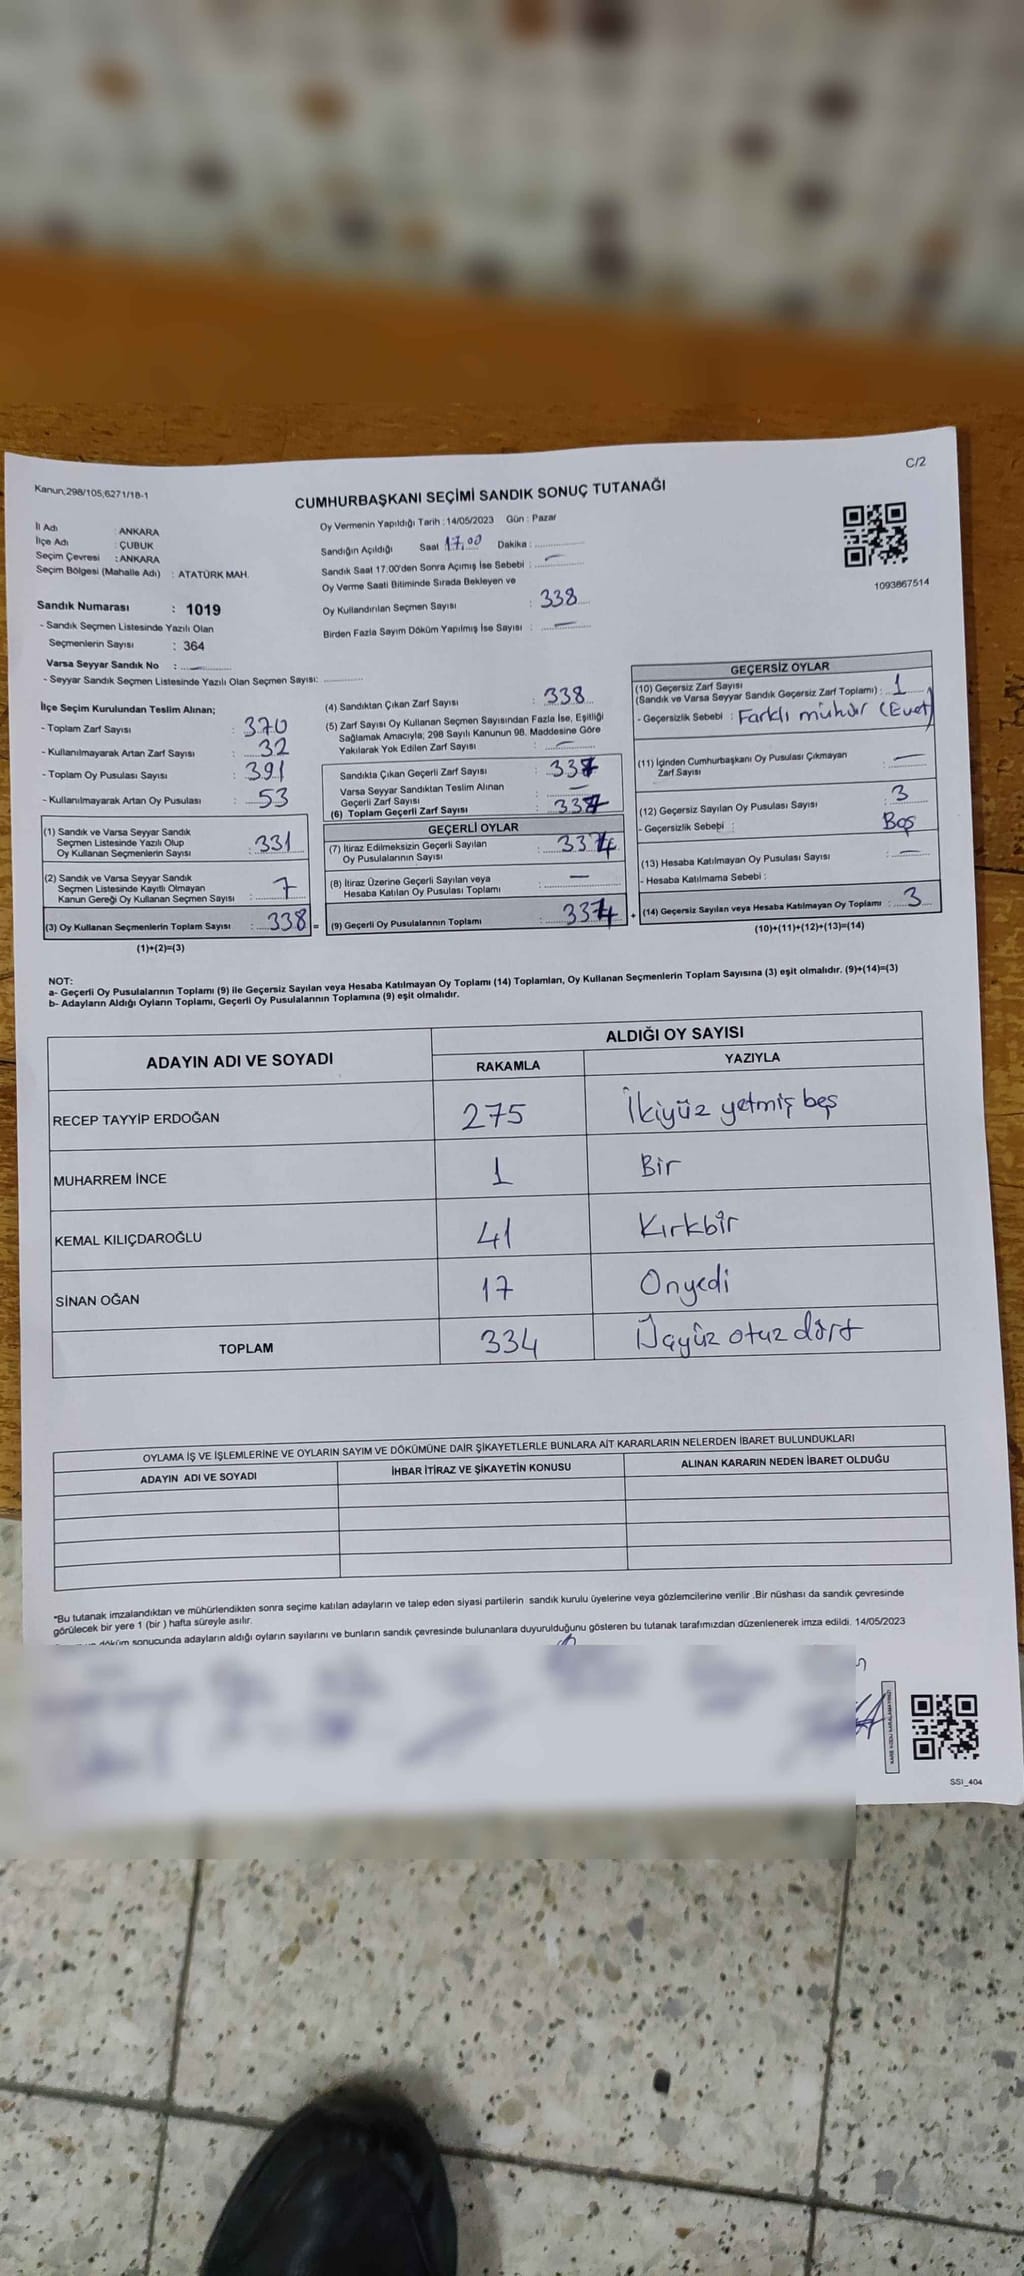 C/2
Kanun,298/105;6271/18-1
CUMHURBAŞKANI SEÇİMİ SANDIK SONUÇ TUTANAĞI
İl Adı : ANKARA
İlçe Adı : ÇUBUK
Seçim Çevresi : ANKARA
Seçim Bölgesi (Mahalle Adı) : ATATÜRK MAH.
Sandık Numarası : 1019
- Sandık Seçmen Listesinde Yazılı Olan
Seçmenlerin Sayısı : 364
Varsa Seyyar Sandık No : —
- Seyyar Sandık Seçmen Listesinde Yazılı Olan Seçmen Sayısı: ............
Oy Vermenin Yapıldığı Tarih : 14/05/2023 Gün : Pazar
Sandığın Açıldığı Saat 17,00 Dakika : ............
Sandık Saat 17:00'den Sonra Açımış İse Sebebi : —
Oy Verme Saati Bitiminde Sırada Bekleyen ve
Oy Kullandırılan Seçmen Sayısı : 338
Birden Fazla Sayım Döküm Yapılmış İse Sayısı : —
1093867514
İlçe Seçim Kurulundan Teslim Alınan;
- Toplam Zarf Sayısı : 370
- Kullanılmayarak Artan Zarf Sayısı : 32
- Toplam Oy Pusulası Sayısı : 391
- Kullanılmayarak Artan Oy Pusulası : 53
(1) Sandık ve Varsa Seyyar Sandık
Seçmen Listesinde Yazılı Olup
Oy Kullanan Seçmenlerin Sayısı : 331
(2) Sandık ve Varsa Seyyar Sandık
Seçmen Listesinde Kayıtlı Olmayan
Kanun Gereği Oy Kullanan Seçmen Sayısı : 7
(3) Oy Kullanan Seçmenlerin Toplam Sayısı : 338 =
(1)+(2)=(3)
(4) Sandıktan Çıkan Zarf Sayısı : 338
(5) Zarf Sayısı Oy Kullanan Seçmen Sayısından Fazla İse, Eşitliği
Sağlamak Amacıyla; 298 Sayılı Kanunun 98. Maddesine Göre
Yakılarak Yok Edilen Zarf Sayısı : —
Sandıkta Çıkan Geçerli Zarf Sayısı : 337
Varsa Seyyar Sandıktan Teslim Alınan
Geçerli Zarf Sayısı : —
(6) Toplam Geçerli Zarf Sayısı : 337
GEÇERLİ OYLAR
(7) İtiraz Edilmeksizin Geçerli Sayılan
Oy Pusulalarının Sayısı : 334
(8) İtiraz Üzerine Geçerli Sayılan veya
Hesaba Katılan Oy Pusulası Toplamı : —
(9) Geçerli Oy Pusulalarının Toplamı : 334 +
GEÇERSİZ OYLAR
(10) Geçersiz Zarf Sayısı
(Sandık ve Varsa Seyyar Sandık Geçersiz Zarf Toplamı) : 1
- Geçersizlik Sebebi : Farklı mühür (Evet)
(11) İçinden Cumhurbaşkanı Oy Pusulası Çıkmayan
Zarf Sayısı : —
(12) Geçersiz Sayılan Oy Pusulası Sayısı : 3
- Geçersizlik Sebebi : Boş
(13) Hesaba Katılmayan Oy Pusulası Sayısı : —
- Hesaba Katılmama Sebebi :
(14) Geçersiz Sayılan veya Hesaba Katılmayan Oy Toplamı : 3
(10)+(11)+(12)+(13)=(14)
NOT:
a- Geçerli Oy Pusulalarının Toplamı (9) ile Geçersiz Sayılan veya Hesaba Katılmayan Oy Toplamı (14) Toplamları, Oy Kullanan Seçmenlerin Toplam Sayısına (3) eşit olmalıdır. (9)+(14)=(3)
b- Adayların Aldığı Oyların Toplamı, Geçerli Oy Pusulalarının Toplamına (9) eşit olmalıdır.
ADAYIN ADI VE SOYADI ALDIĞI OY SAYISI
RAKAMLA YAZIYLA
RECEP TAYYİP ERDOĞAN 275 İkiyüz yetmiş beş
MUHARREM İNCE 1 Bir
KEMAL KILIÇDAROĞLU 41 Kırkbir
SİNAN OĞAN 17 Onyedi
TOPLAM 334 Üçyüz otuz dört
OYLAMA İŞ VE İŞLEMLERİNE VE OYLARIN SAYIM VE DÖKÜMÜNE DAİR ŞİKAYETLERLE BUNLARA AİT KARARLARIN NELERDEN İBARET BULUNDUKLARI
ADAYIN ADI VE SOYADI İHBAR İTİRAZ VE ŞİKAYETİN KONUSU ALINAN KARARIN NEDEN İBARET OLDUĞU
*Bu tutanak imzalandıktan ve mühürlendikten sonra seçime katılan adayların ve talep eden siyasi partilerin sandık kurulu üyelerine veya gözlemcilerine verilir .Bir nüshası da sandık çevresinde
görülecek bir yere 1 (bir ) hafta süreyle asılır.
döküm sonucunda adayların aldığı oyların sayılarını ve bunların sandık çevresinde bulunanlara duyurulduğunu gösteren bu tutanak tarafımızdan düzenlenerek imza edildi. 14/05/2023
SSI_404